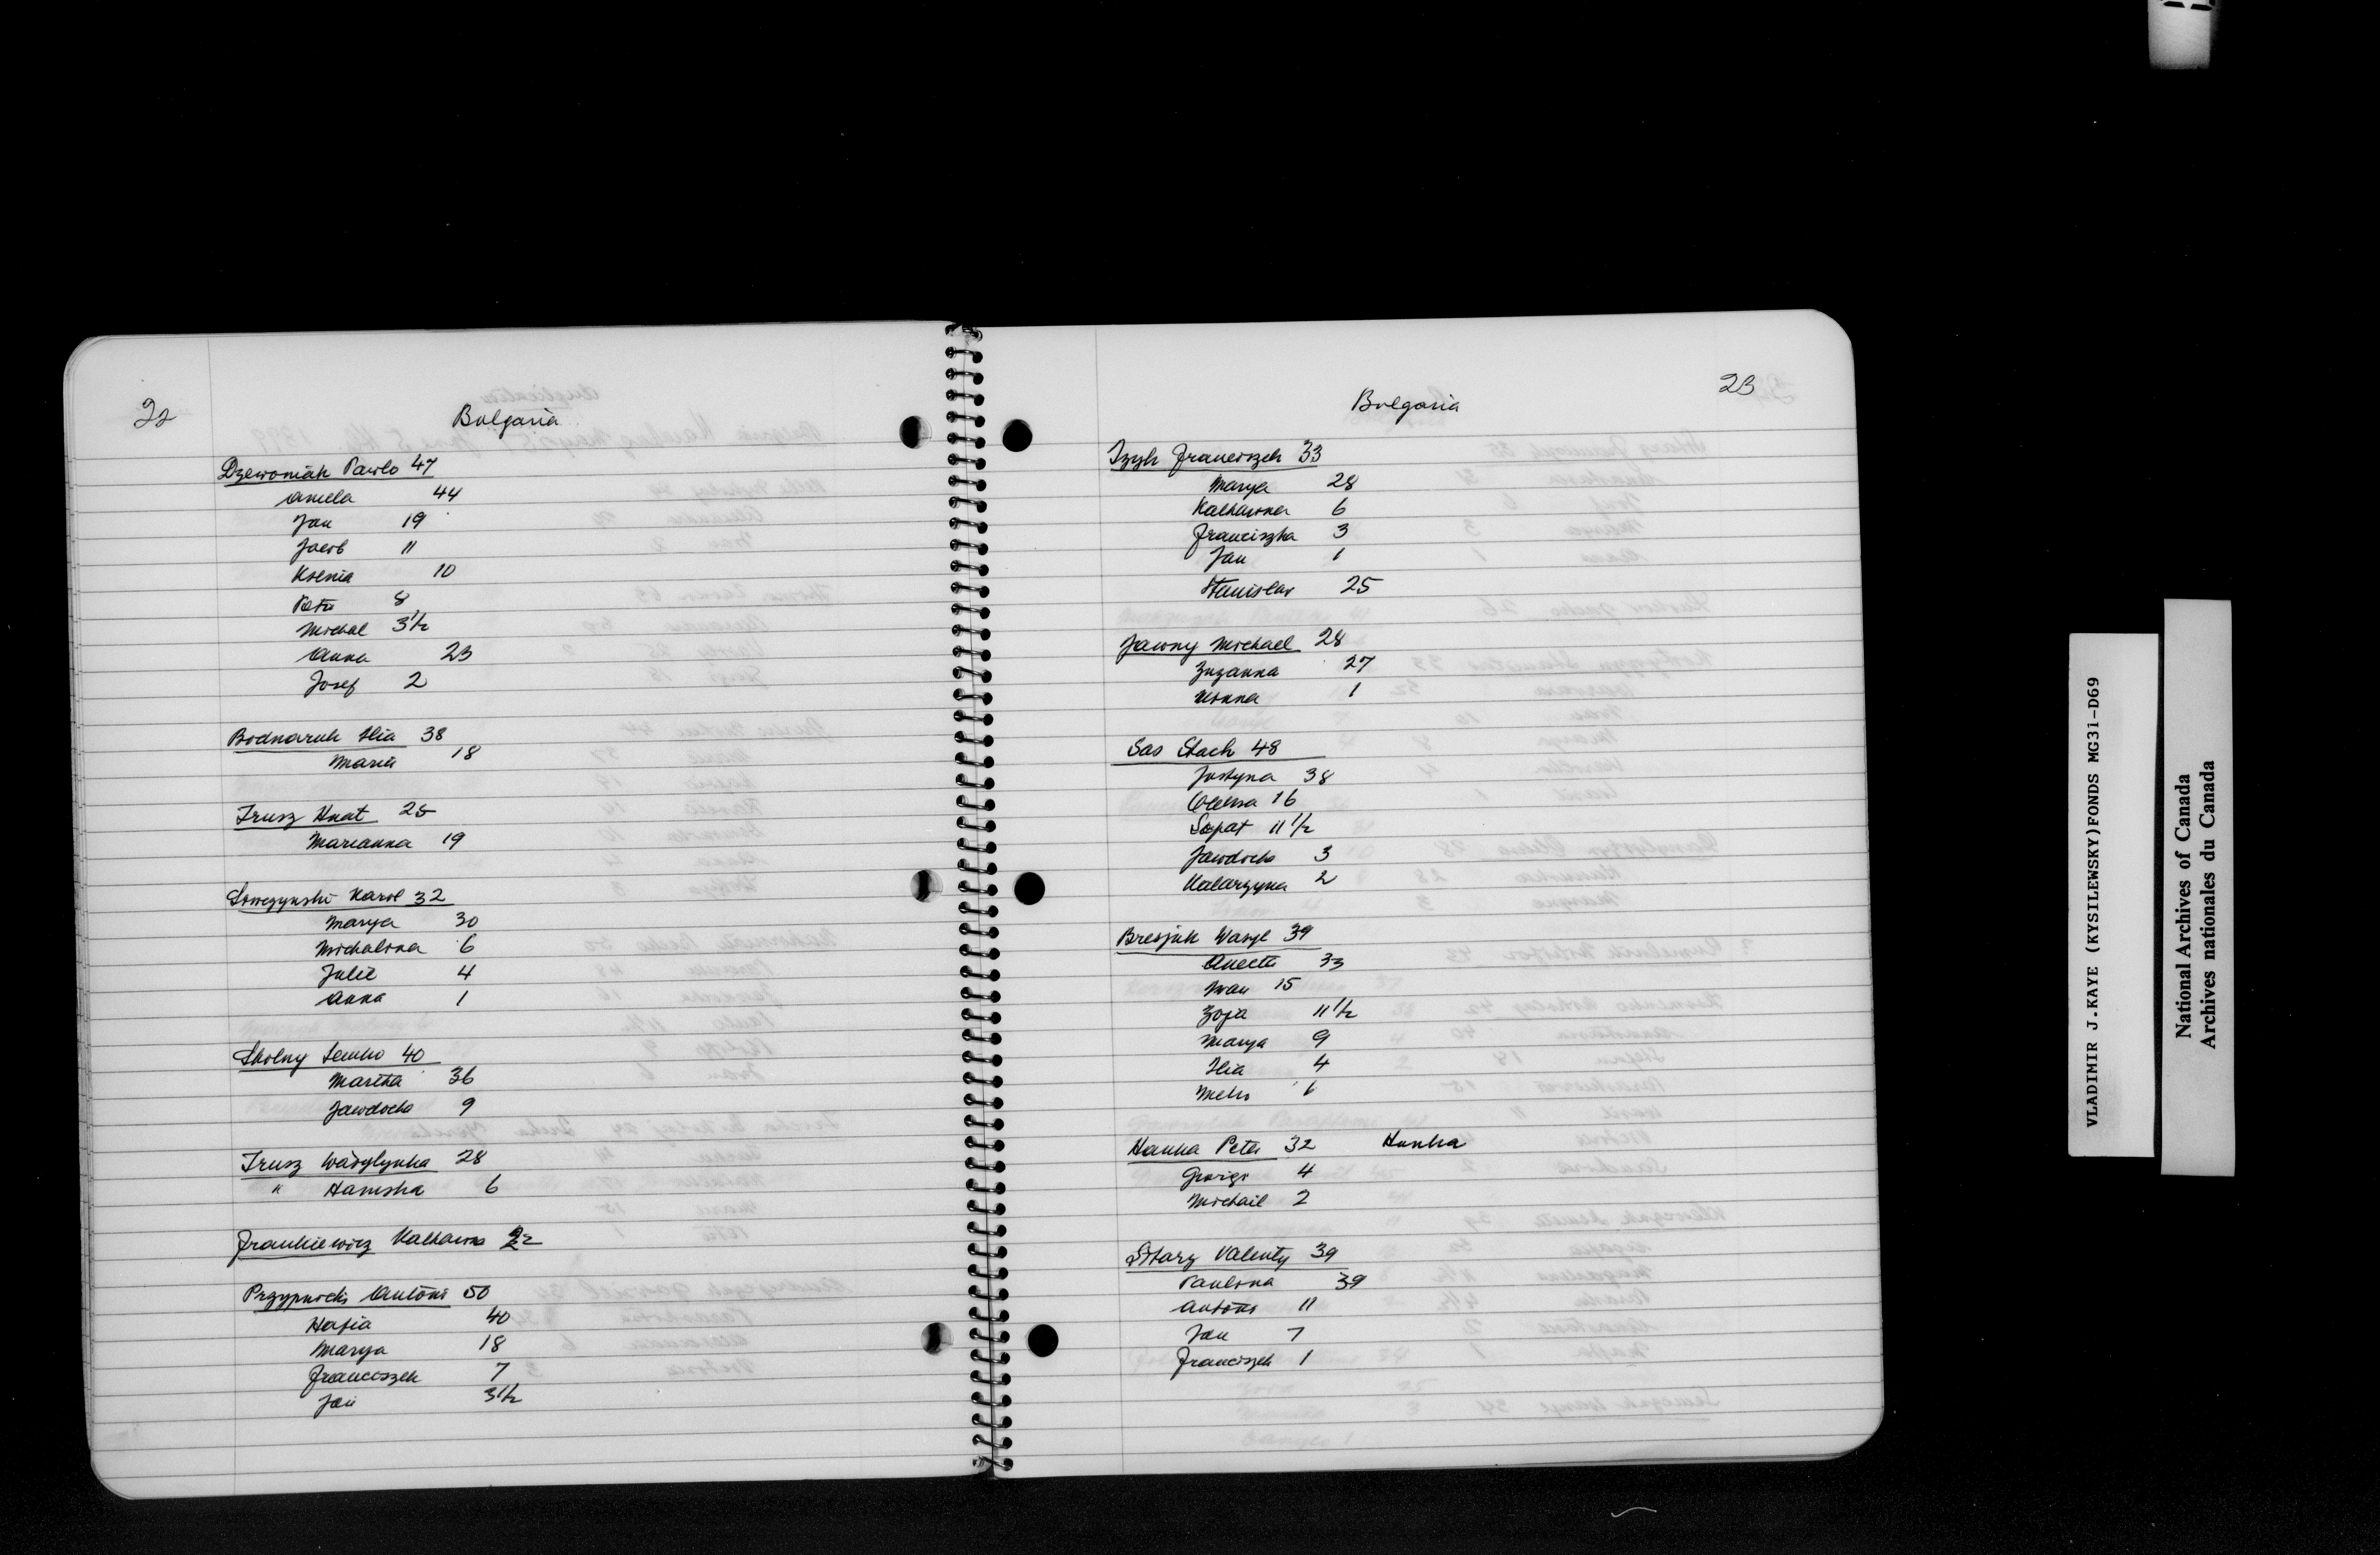 22
Bulgaria
Dzewoniak Pawlo 47
Aniela 44
Jan 19
Jacob 11
Ksenia 10
Petri 8
Michal 3 1/2
Anna 23
Josef 2
Bodnaruk Ilia 38
Maria 18
Trusz Hnat 25
Marianna 19
Karol 32
Marya 30
Michalina 6
Julie 4
Anna 1
Skolny Semko 40
Martha 36
Jawdocha 9
Trusz Wasylynka 28
" 6
Frankiewicz Katharina
Antoni 50
Hafia 40
Marya 18
Franciszek 7
Jan 3 1/2
23
Bulgaria
Franciszek 33
Marya 28
Katharina 6
Franciszka 3
Jan 1
Stanislav 25
Jawny Michael 28
Zuzanna 27
1
Sas Stach 48
Justyna 38
Oleksa 16
11 1/2
Jawdocha 3
Katarzyna 2
Bresjuk Wasyl 39
Anecta 33
Iwan 15
Zofia 11 1/2
Marya 9
Ilia 4
Hanka Peter 32 Hunka
4
Michail 2
Valenty 39
Paulina 39
Antoni 11
Jan 7
Franciszek 1
VLADIMIR J.KAYE (KYSILEWSKY)FONDS MG31-D69
National Archives of Canada
Archives nationales du Canada